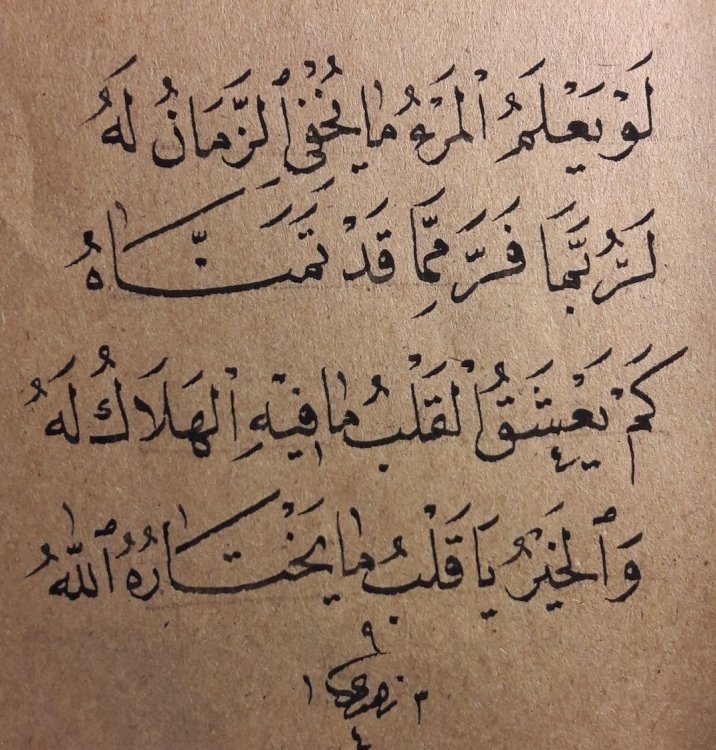 لَوْ يَعْلَمُ ٱلْمَرْءُ مَا يُخْفِي ٱلزَّمَانُ لَهُ
لَرُبَّمَا فَرَّ مِمَّا قَدْ تَمَنَّاهُ
كَمْ يَعْشَقُ ٱلْقَلْبُ مَا فِيْهِ ٱلْهَلَاكُ لَهُ
وَٱلْخَيْرُ يَا قَلْبُ مَا يَخْتَارُهُ ٱللّٰهُ